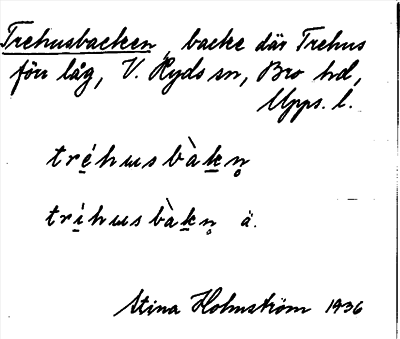 Trehusbacken, backe där Trehus
förr låg, V. Ryds sn, Bro hd,
Upps. l.
tré̱husbàḵn̥
trí̱husbàḵn̥ ä.
Stina Holmström 1936